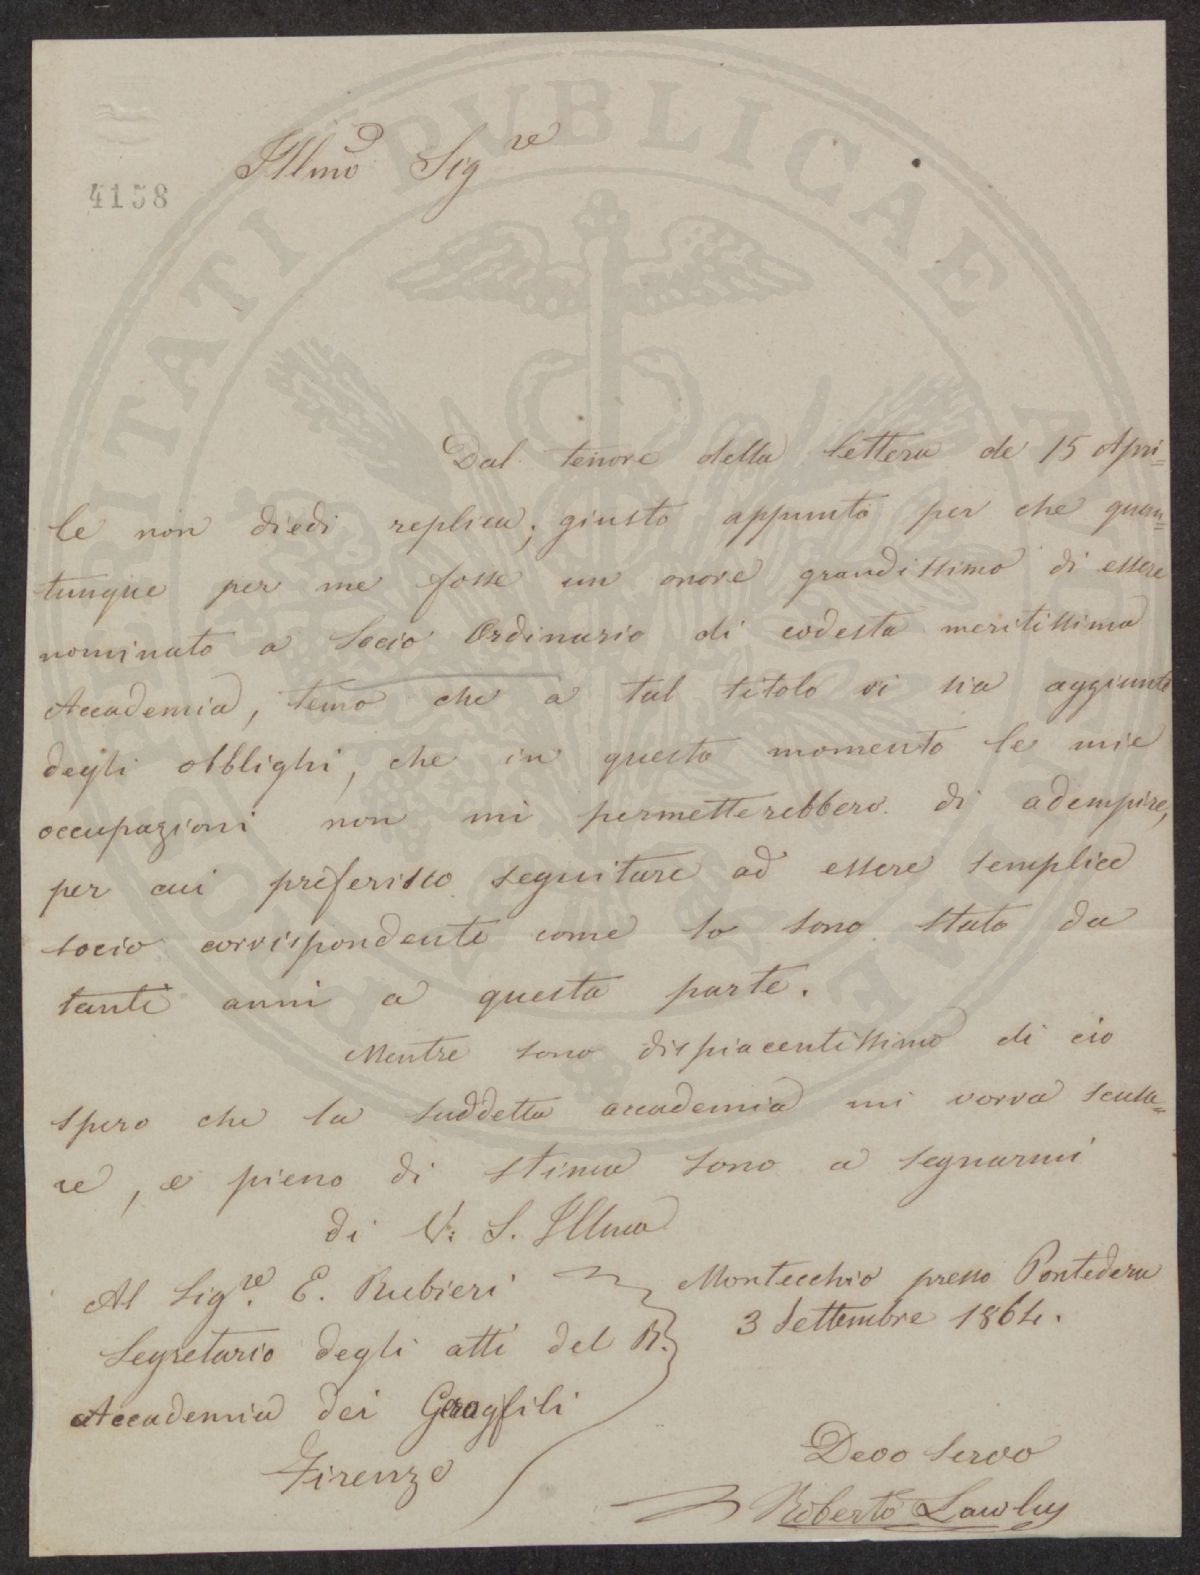 Illmo Sigre
4158
Dal tenore della lettera de 15 Apri=
le non diedi replica, giusto appunto per che quan=
tunque per me fosse un onore grandissimo di essere
nominato a Socio Ordinario di codesta meritissima
Accademia, temo che a tal titolo vi sia aggiunto
degli obblighi, che in questo momento le mie
occupazioni non mi permetterebbero di adempire,
per cui preferisco seguitare ad essere semplice
socio corrispondente come lo sono stato da
tanti anni a questa parte.
Mentre sono dispiacentissimo di cio
spero che la suddetta accademia mi vorra scusa=
re, e pieno di stima sono a segnarmi
di V: S. Illma
Al Sigre. E. Rubieri
Segretario degli atti del R.
Accademia dei
Firenze
Montecchio presso Pontedera
3 Settembre 1864.
Devo Servo
Roberto Lawley
PUBLICAE